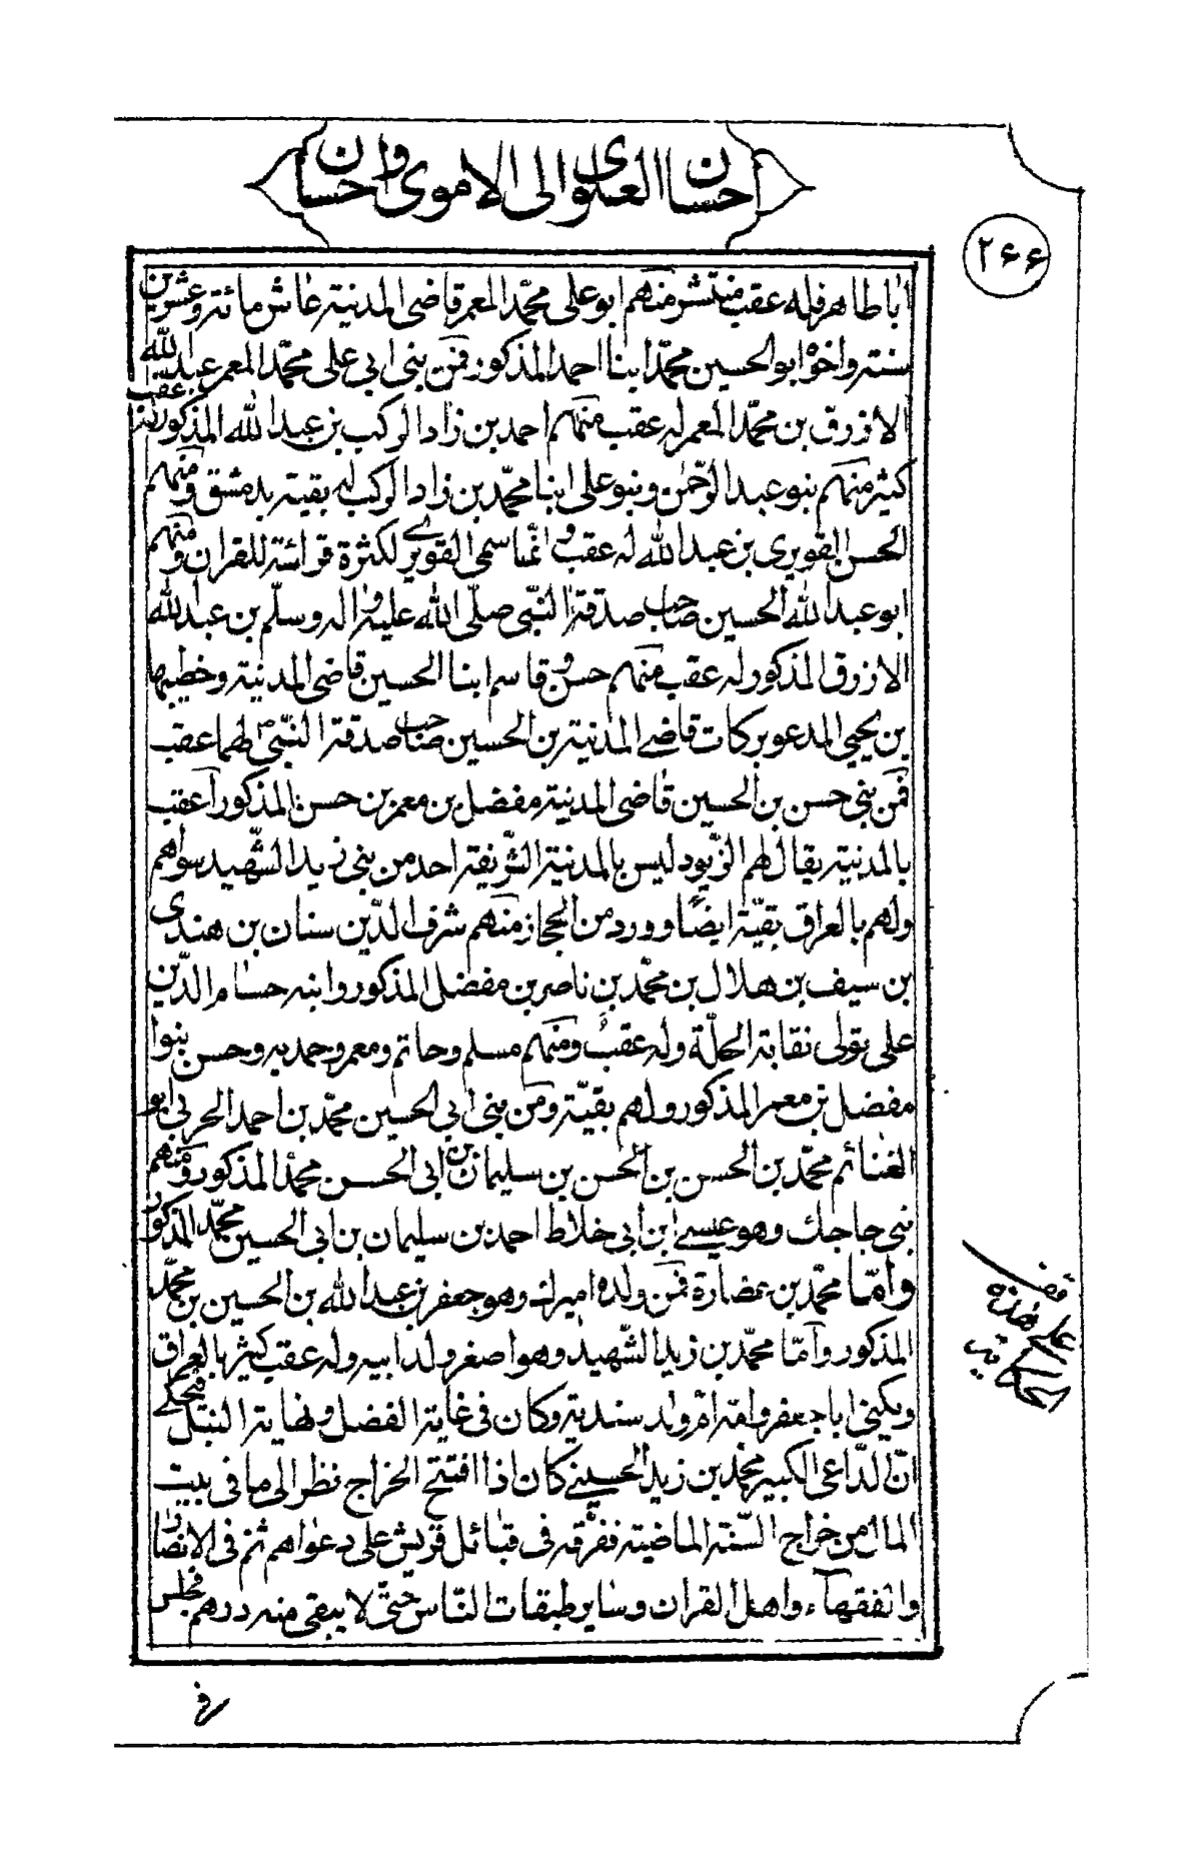 احسان العلوى الى الاموى واحسان
٢۶۶
اباطاهر فله عقب منتشر منهم ابو على محمّد المعمر قاضى المدنية عاش مائة وعشرين
سنة واخوه ابو الحسين محمّد ابنا احمد المذكور فمن بنى ابى على محمّد المعمر عبدالله
الازرق بن محمّد المعمر له عقب منهم احمد بن زاد الركب بن عبدالله المذكور له عقب
كثير منهم بنو عبدالرّحمٰن وبنو على ابنا محمّد بن زاد الركب له بقية بدمشق ومنهم
الحسن القويرى بن عبدالله له عقب وانّما سمى القويرى لكثرة قرائته للقران ومنهم
ابو عبدالله الحسين صاحب صدقة النّبى صلّى الله عليه واله وسلّم بن عبدالله
الازرق المذكور له عقب منهم حسن وقاسم ابنا الحسين قاضى المدنية وخطيبها
بن يحيى المدعو بركات قاضى المدنية بن الحسين صاحب صدقة النّبىّ ص لهما عقب
فمن بنى حسن بن الحسين قاضى المدنية مفضل بن معمر بن حسن المذكور اعقب
بالمدنية يقال لهم الزّيود ليس بالمدنية الشّريفة احد من بنى زيد الشّهيد سواهم
ولهم بالعراق بقيّة ايضًا وورد من الحجاز منهم شرف الدّين سنان بن هندى
بن سيف بن هلال بن محمّد بن ناصر بن مفضل المذكور وابنه حسام الدّين
على تولى نقابة الحلّة وله عقب ومنهم مسلم وحاتم ومعمر وحمديه وحسن بنوا
مفضل بن معمر المذكور ولهم بقيّة ومن بنى ابى الحسين محمّد بن احمد الحربى ابو
الغنائم محمّد بن الحسن بن الحسن بن سليمان بن ابى الحسن محمّد المذكور ومنهم
بنى جاجك وهو عيسى ابن ابى خلاط احمد بن سليمان بن ابى الحسين محمّد المذكور
وامّا محمّد بن عضارة فمن ولده اميرك وهو جعفر بن عبدالله بن الحسين بن محمّد
المذكور وامّا محمّد بن زيد الشّهيد وهو اصغر ولد ابيه وله عقب كثير بالعراق
ويكنى اباجعفر وامّه امّ ولد سندية وكان فى غاية الفضل ونهاية النبل فيحكى
انّ الدّاعى الكبير محمّد بن زيد الحسينى كان اذا افتتح الخراج نظر الى ما فى بيت
المال من خراج السّنة الماضية ففرّقه فى قبائل قريش على دعواهم ثم فى الانصار
والفقهآء واهل القران وساير طبقات النّاس حتىّ لا يبقى منه درهم فجلس
قف
على هذه
الحكاية
فى